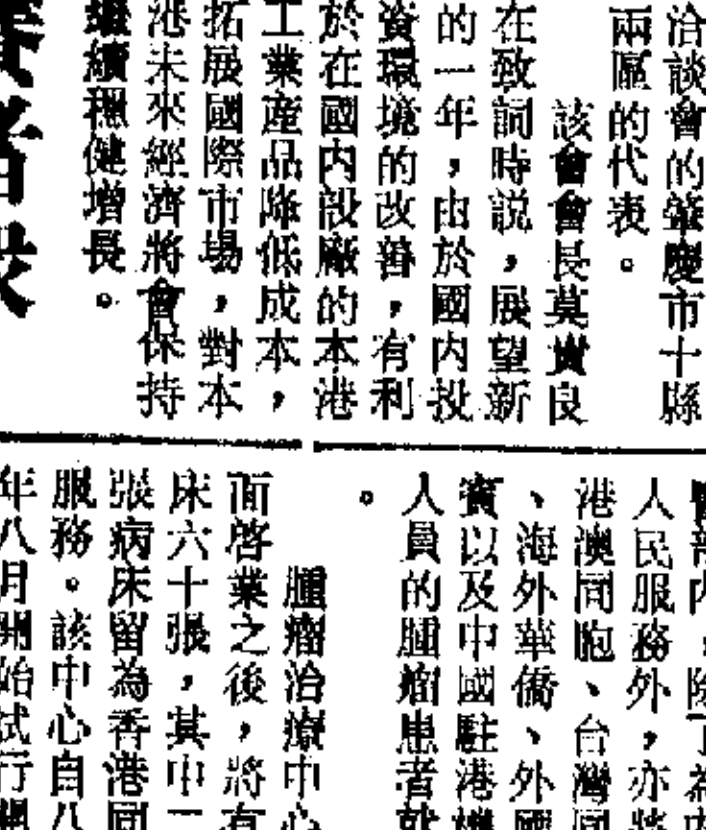 洽談會的肇慶市十縣
兩區的代表。
該會會長莫實良
在致詞時説，展望新
的一年，由於國内投
資環境的改善，有利
於在國内設廠的本港
工業産品降低成本，
拓展國際市場，對本
港未來經濟將會保持
繼續穩健增長。
醫部内，除了為内
人民服務外，亦將
港澳同胞、台灣同
、海外華僑、外國
賓以及中國駐港機
人員的腫瘤患者就
。
腫瘤治療中心
面啓業之後，將有
床六十張，其中一
張病床留為香港同
服務。該中心自八
年八月開始試行